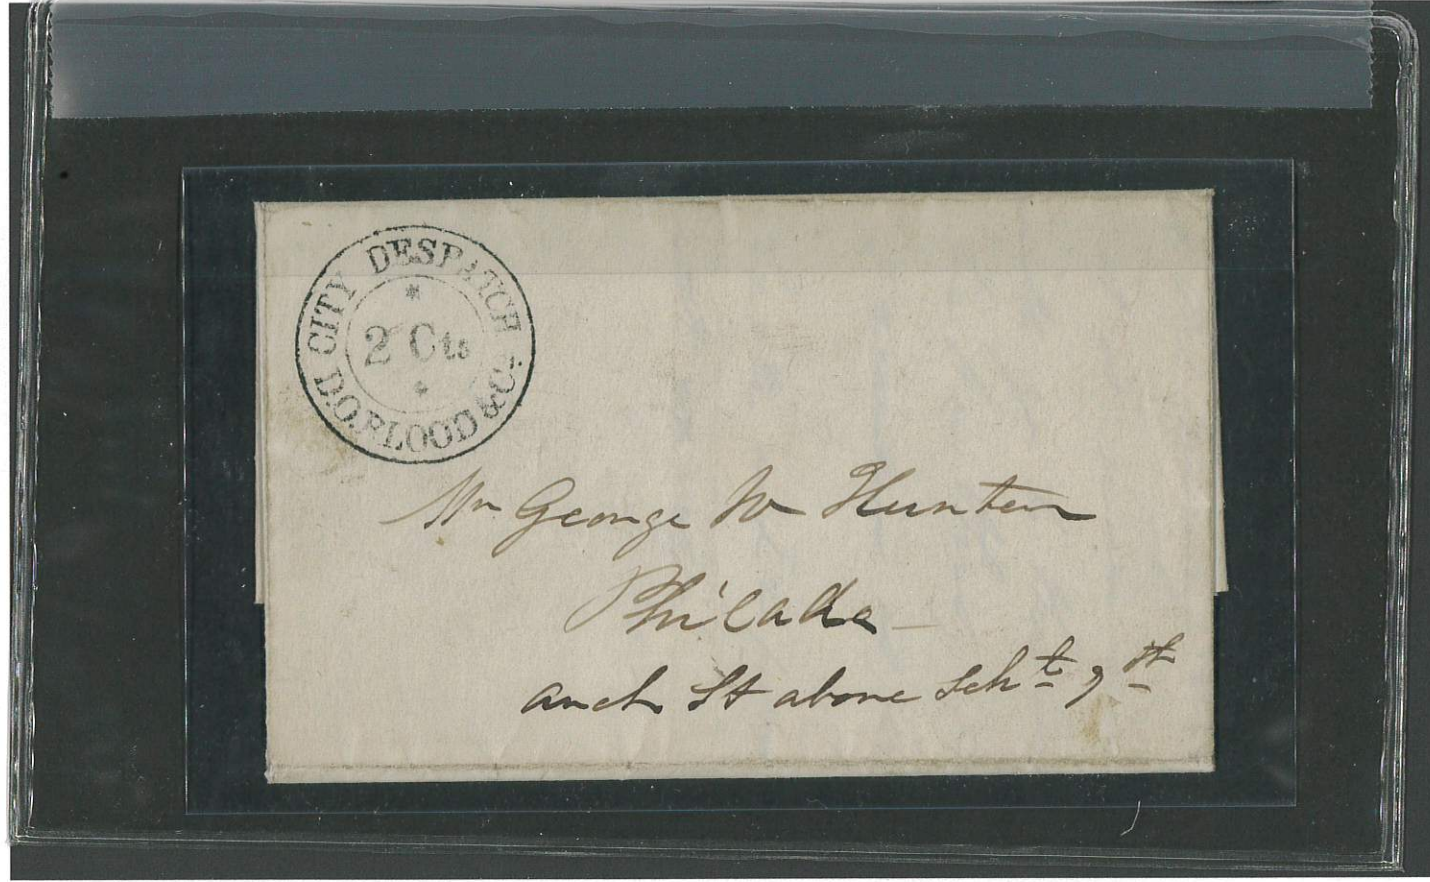 CITY DESPATCH
2 Cts
D.O.FLOOD & Co.
Mr George W Hunter
Philada
arch St above Sch 7th